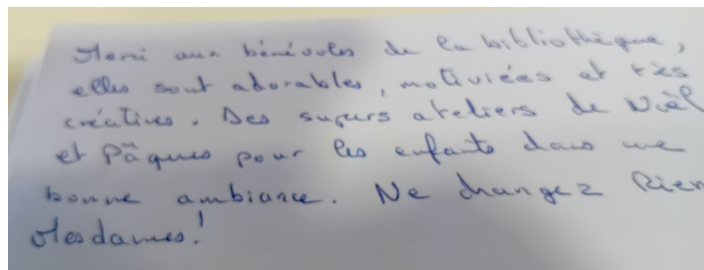 Merci aux bénévoles de la bibliothèque,
elles sont adorables, motiviées et très
créatives. Des supers ateliers de Noël
et Pâques pour les enfants dans une
bonne ambiance. Ne changez Rien
Mesdames!